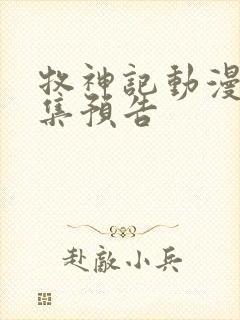 牧神記動漫
集預告
赴敵小兵